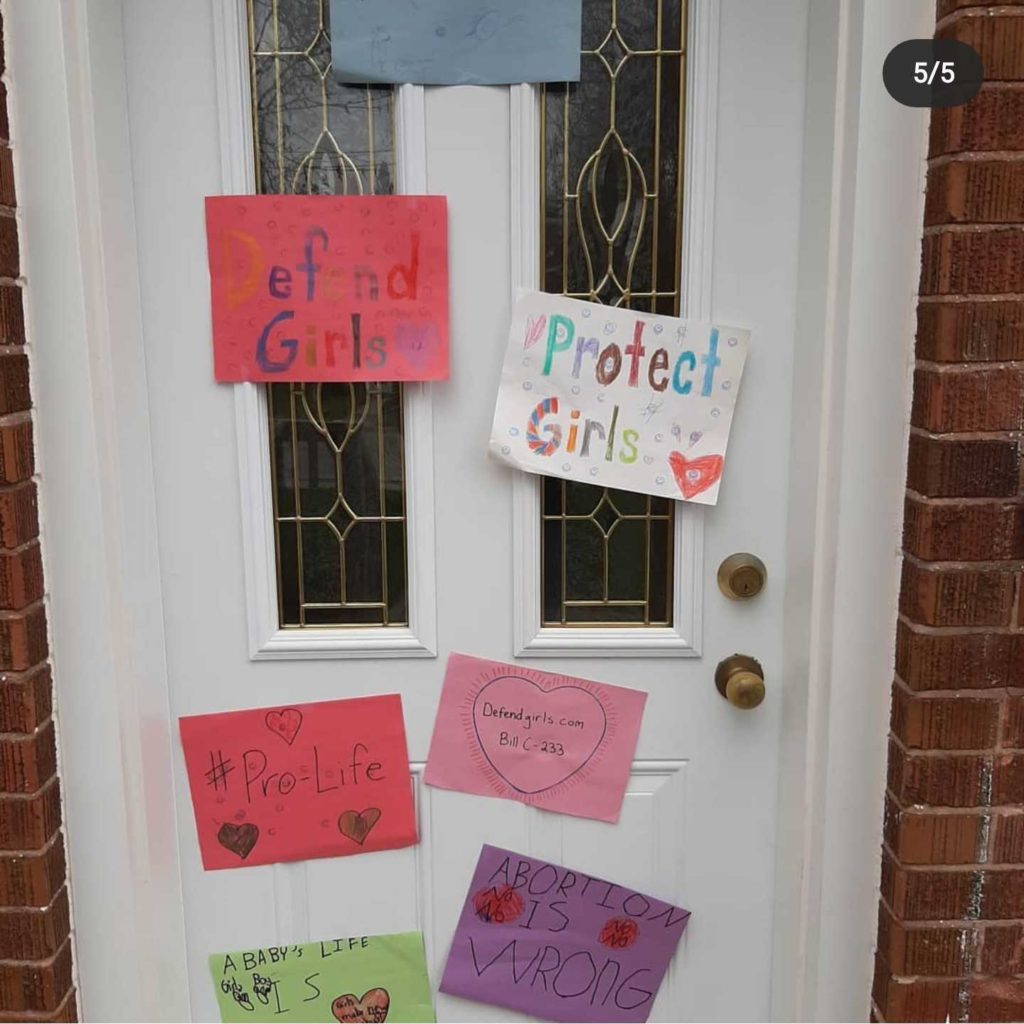 5/5
Defend
Girls
Protect
Girls
#Pro-Life
Defendgirls.com
Bill C-233
ABORTION
No
No
IS
No
No
WRONG
A BABY's LIFE
Girl Boy
IS
Girls